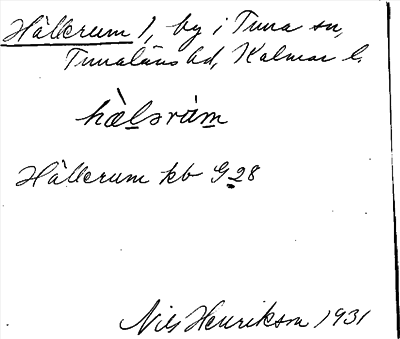 Hällerum 1, by i Tuna sn,
Tunaläns hd, Kalmar l.
hæ̀lərùm
Hällerum kb G28
Nils Henrikson 1931